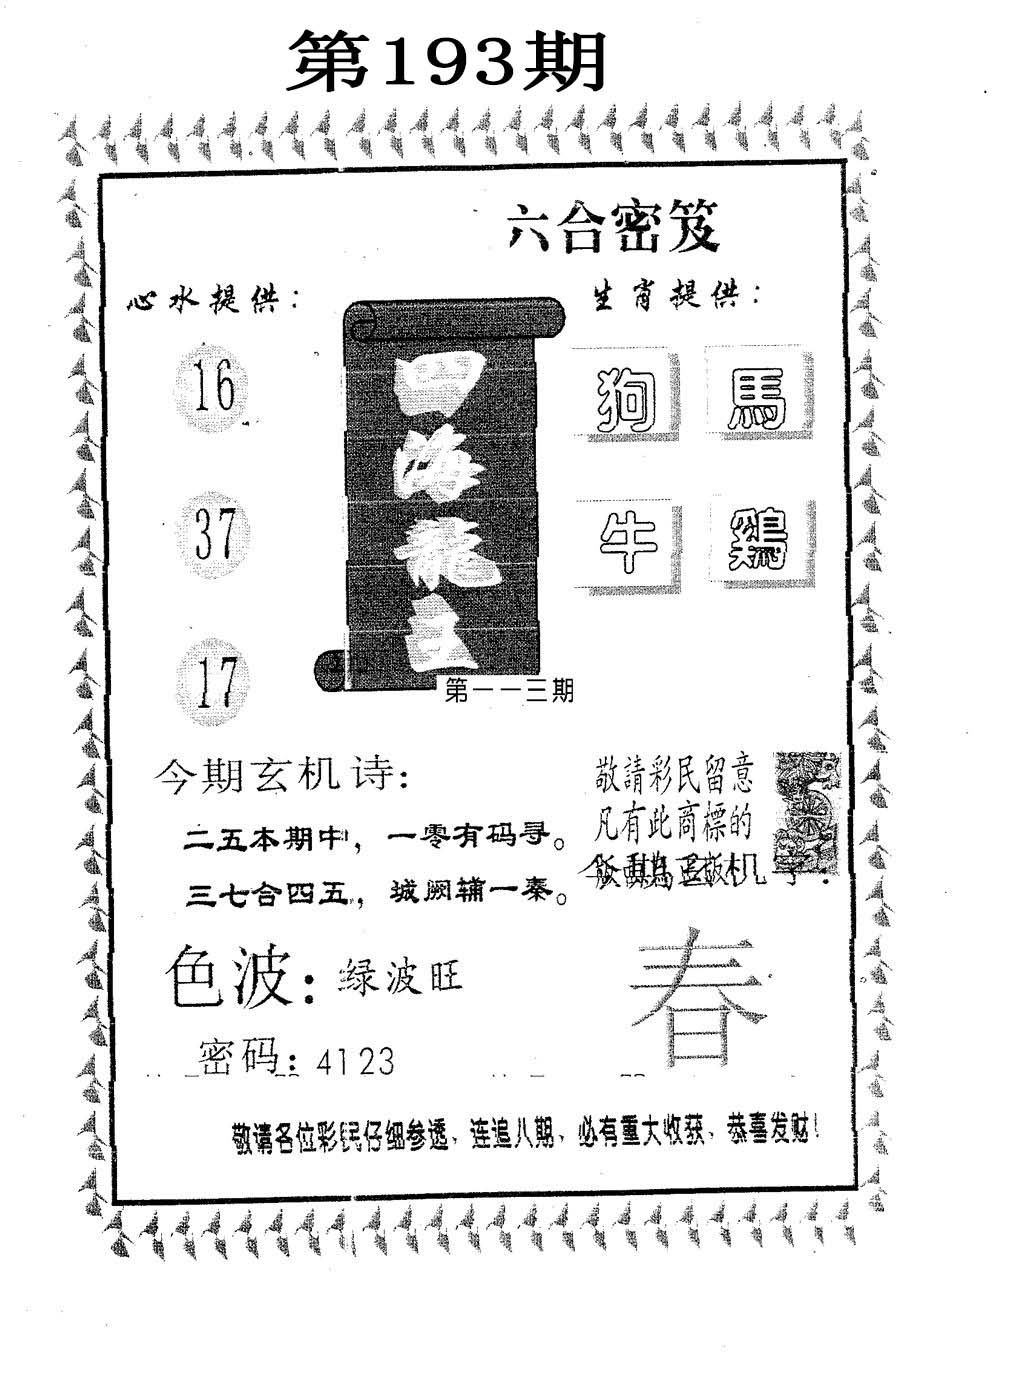 第193期
六合密笈
心水提供：
生肖提供：
16
37
17
四海龍王
狗 馬
牛 鷄
第一一三期
今期玄机诗:
二五本期中，一零有码寻。
三七合四五，城阙辅一秦。
敬請彩民留意
凡有此商標的
机字：
色波：绿波旺
春
密码：4123
敬请各位彩民仔细参透、连追八期、必有重大收获、恭喜发财！